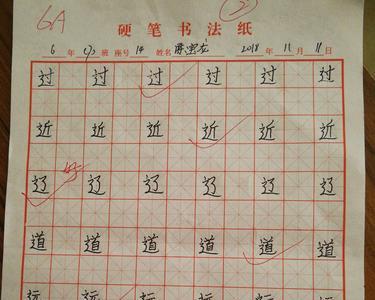 6A
硬笔书法纸
6 年 班 座号 14 姓名 2018 年 11 月 11 日
过 过 过 过 过 过
近 近 近 近 近 近
辽 好 辽 辽 辽 辽 辽
道 道 道 道 道 道
远 远 远 远 远 远